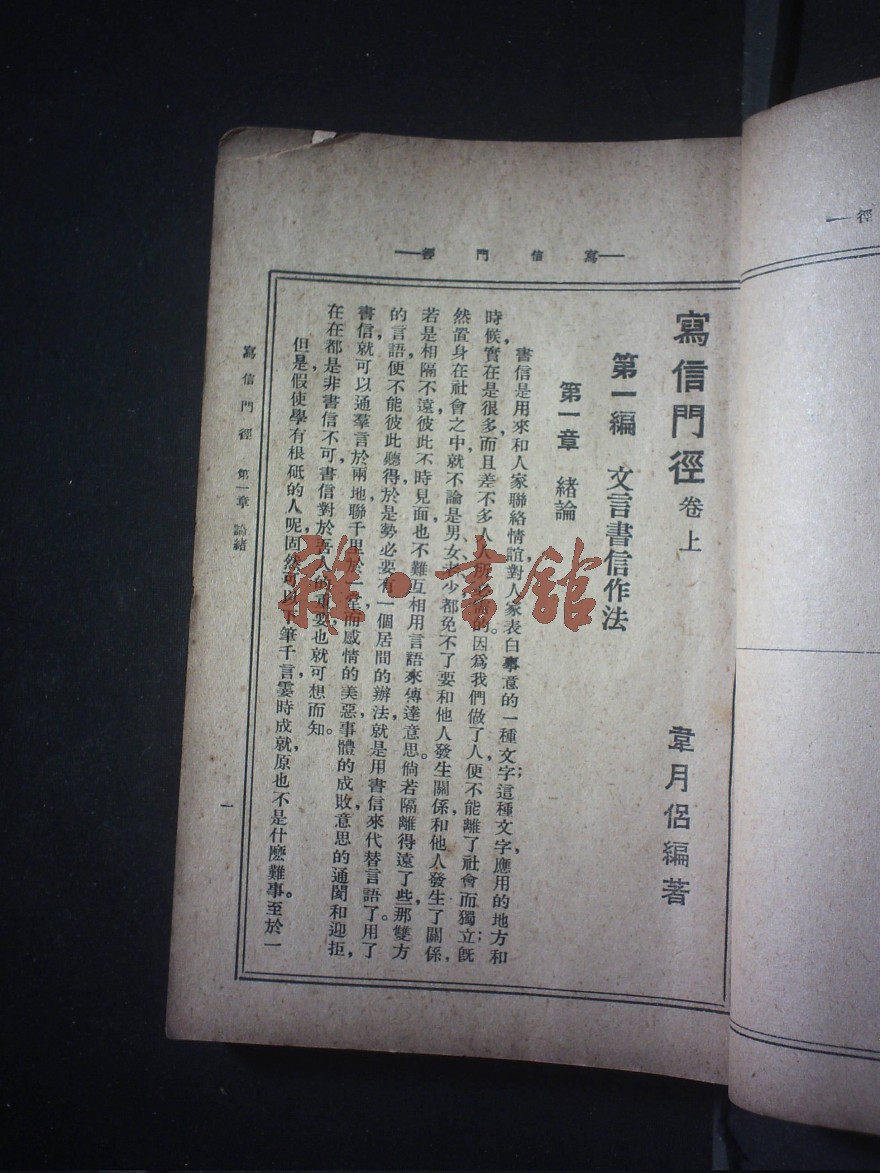 寫信門徑
寫信門徑 卷上
韋月侶編著
第一編 文言書信作法
第一章 緒論
書信是用來和人家聯絡情誼，對人家表白事意的一種文字；這種文字應用的地方和
時候，實在是很多，而且差不多人人所必備的。因爲我們做了人，便不能離了社會而獨立；既
然置身在社會之中，就不論是男女老少，都免不了要和他人發生關係，和他人發生了關係，
若是相隔不遠，彼此不時見面，也不難互相用言語來傳達意思。倘若隔離得遠了些，那雙方
的言語，便不能彼此聽得，於是勢必要有一個居間的辦法，就是用書信來代替言語了。用了
書信，就可以通羣言於兩地，聯千里於一堂，而感情的美惡，事體的成敗，意思的通閡和迎拒，
在在都是非書信不可，書信對於吾人的重要，也就可想而知。
但是，假使學有根砥的人呢，固然可以下筆千言，霎時成就，原也不是什麽難事。至於一
寫信門徑 第一章 論緒
一
徑
雜·書館